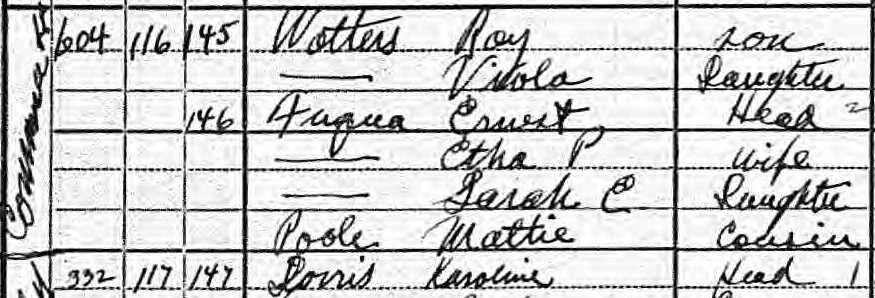 604 116 145 Wotters Roy son
— Viola Daughter
146 Fuqua Ernest Head 2
— Etha P. wife
— Sarah C Daughter
Poole Mattie Cousin
332 117 147 Dorris Karoline Head 1